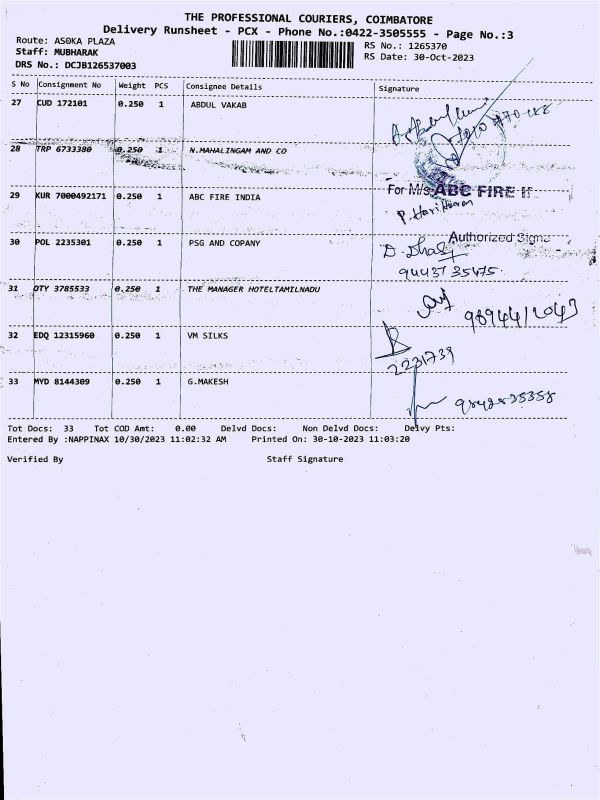 THE PROFESSIONAL COURIERS, COIMBATORE
Delivery Runsheet - PCX - Phone No.:0422-3505555 - Page No.:3
Route: ASOKA PLAZA
RS No.: 1265370
Staff: MUBHARAK
RS Date: 30-Oct-2023
DRS No.: DCJB126537003
S No Consignment No Weight PCS Consignee Details Signature
27 CUD 172101 0.250 1 ABDUL VAKAB
28 TRP 6733380 0.250 1 N.MAHALINGAM AND CO
For M/s ABC FIRE
29 KUR 7000492171 0.250 1 ABC FIRE INDIA
P. Hariharan
Authorized Signa
30 POL 2235301 0.250 1 PSG AND COPANY
94437 35475
31 OTY 3785533 0.250 1 THE MANAGER HOTELTAMILNADU
9894412043
32 EDQ 12315960 0.250 1 VM SILKS
2231739
33 MYD 8144309 0.250 1 G.MAKESH
Tot Docs: 33 Tot COD Amt: 0.00 Delvd Docs: Non Delvd Docs: Delvy Pts:
Entered By :NAPPINAX 10/30/2023 11:02:32 AM Printed On: 30-10-2023 11:03:20
Verified By Staff Signature